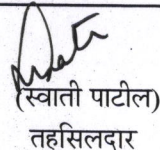 (स्वाती पाटील)
तहसिलदार